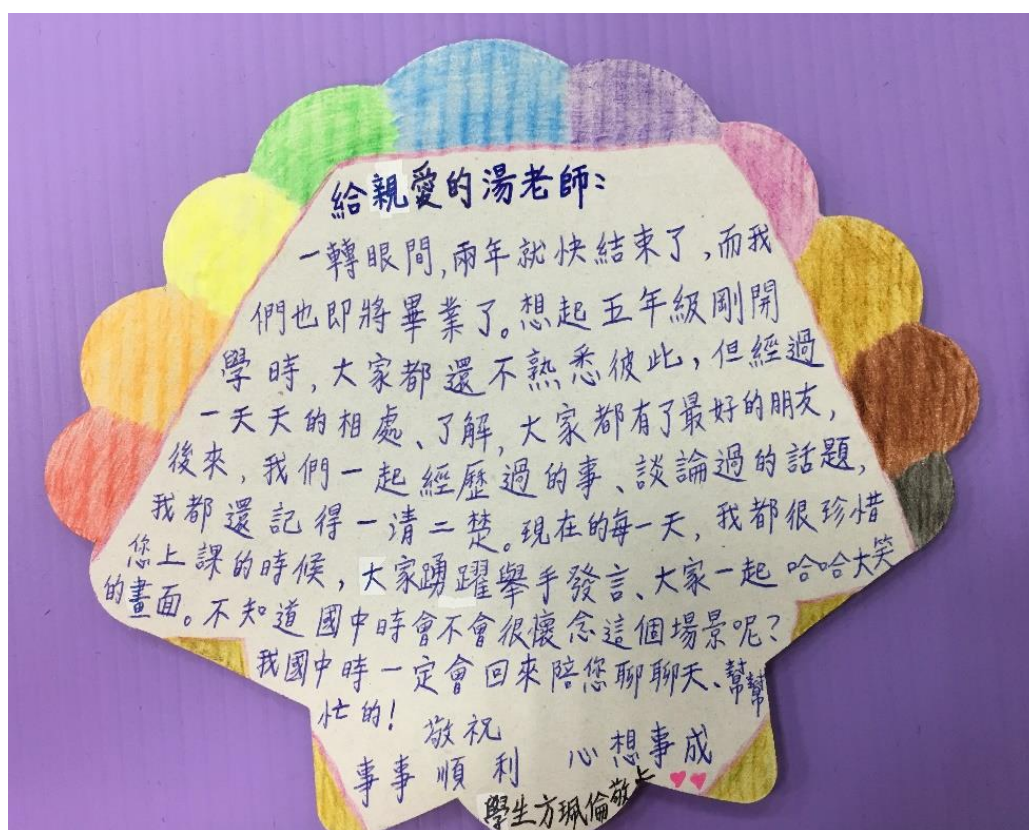 給親愛的湯老師：
一轉眼間，兩年就快結束了，而我
們也即將畢業了。想起五年級剛開
學時，大家都還不熟悉彼此，但經過
一天天的相處、了解，大家都有了最好的朋友，
後來，我們一起經歷過的事、談論過的話題，
我都還記得一清二楚。現在的每一天，我都很珍惜
您上課的時候，大家踴躍舉手發言、大家一起哈哈大笑
的畫面。不知道國中時會不會很懷念這個場景呢？
我國中時一定會回來陪您聊聊天、幫幫
忙的！
敬祝
事事順利 心想事成
學生方珮倫敬上